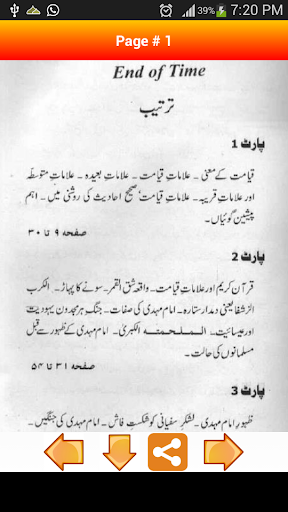 39% 7:20 PM
Page # 1
End of Time
ترتیب
پارٹ 1
قیامت کے معنی ۔ علاماتِ قیامت ۔ علاماتِ بعیدہ ۔ علاماتِ متوسطہ
اور علاماتِ قریبہ ۔ علاماتِ قیامت، صحیح احادیث کی روشنی میں ۔ اہم
پیشین گوئیاں ۔
صفحہ ۹ تا ۳۰
پارٹ 2
قرآن کریم اور علاماتِ قیامت ۔ واقعہ شق القمر ۔ سونے کا پہاڑ ۔ الکرب
الرشفا یعنی دمدار ستارہ ۔ امام مہدی کی صفات ۔ جنگ ہرمجدون یہودیت
اور عیسائیت ۔ الملحمۃ الکبریٰ ۔ امام مہدی کے ظہور سے قبل
مسلمانوں کی حالت ۔
صفحہ ۳۱ تا ۵۴
پارٹ 3
ظہورِ امام مہدی ۔ لشکرِ سفیانی کو شکستِ فاش ۔ امام مہدی کی جنگیں ۔